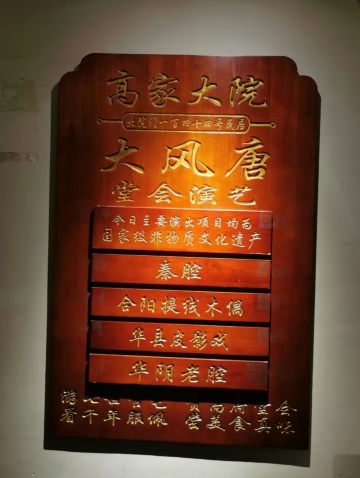 高家大院
北院门一百四十四号民居
大风唐
堂会演艺
今日主要演出项目均为
国家级非物质文化遗产
秦腔
合阳提线木偶
华县皮影戏
华阴老腔
游 高府堂会
看千年服佩 尝美食真味